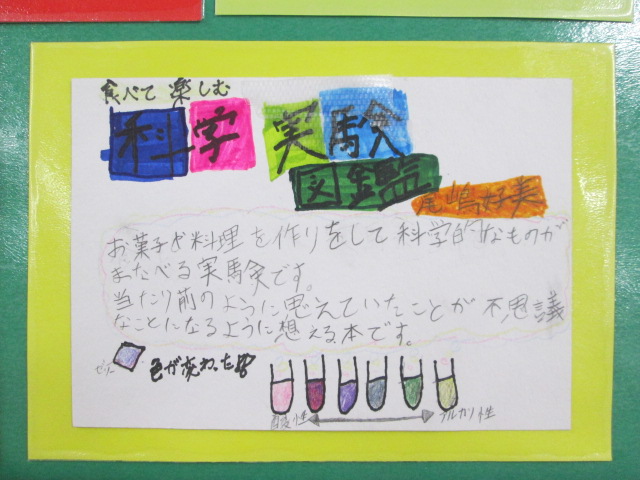 食べて楽しむ
科学 実験
図鑑
尾嶋好美
お菓子や料理を作りをして科学的なものが
またべる実験です。
当たり前のように思えていたことが不思議
なことになるように想える本です。
ゼリー 色が変わった!!
酸性 アルカリ性